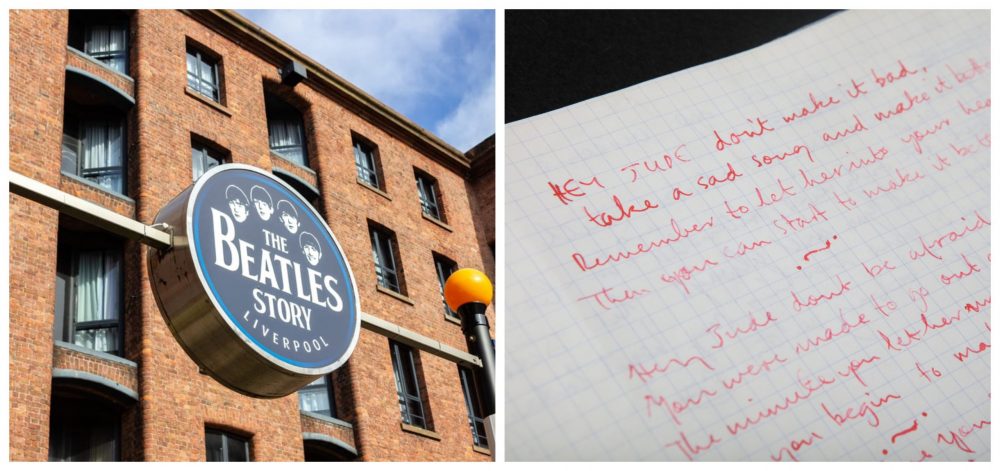 THE
BEATLES
STORY
LIVERPOOL
HEY JUDE don't make it bad,
take a sad song and make it
Remember to let her into your
Then you can start to make it
Hey Jude dont be afraid
You were made to go out
The minute you let her
you begin to
you